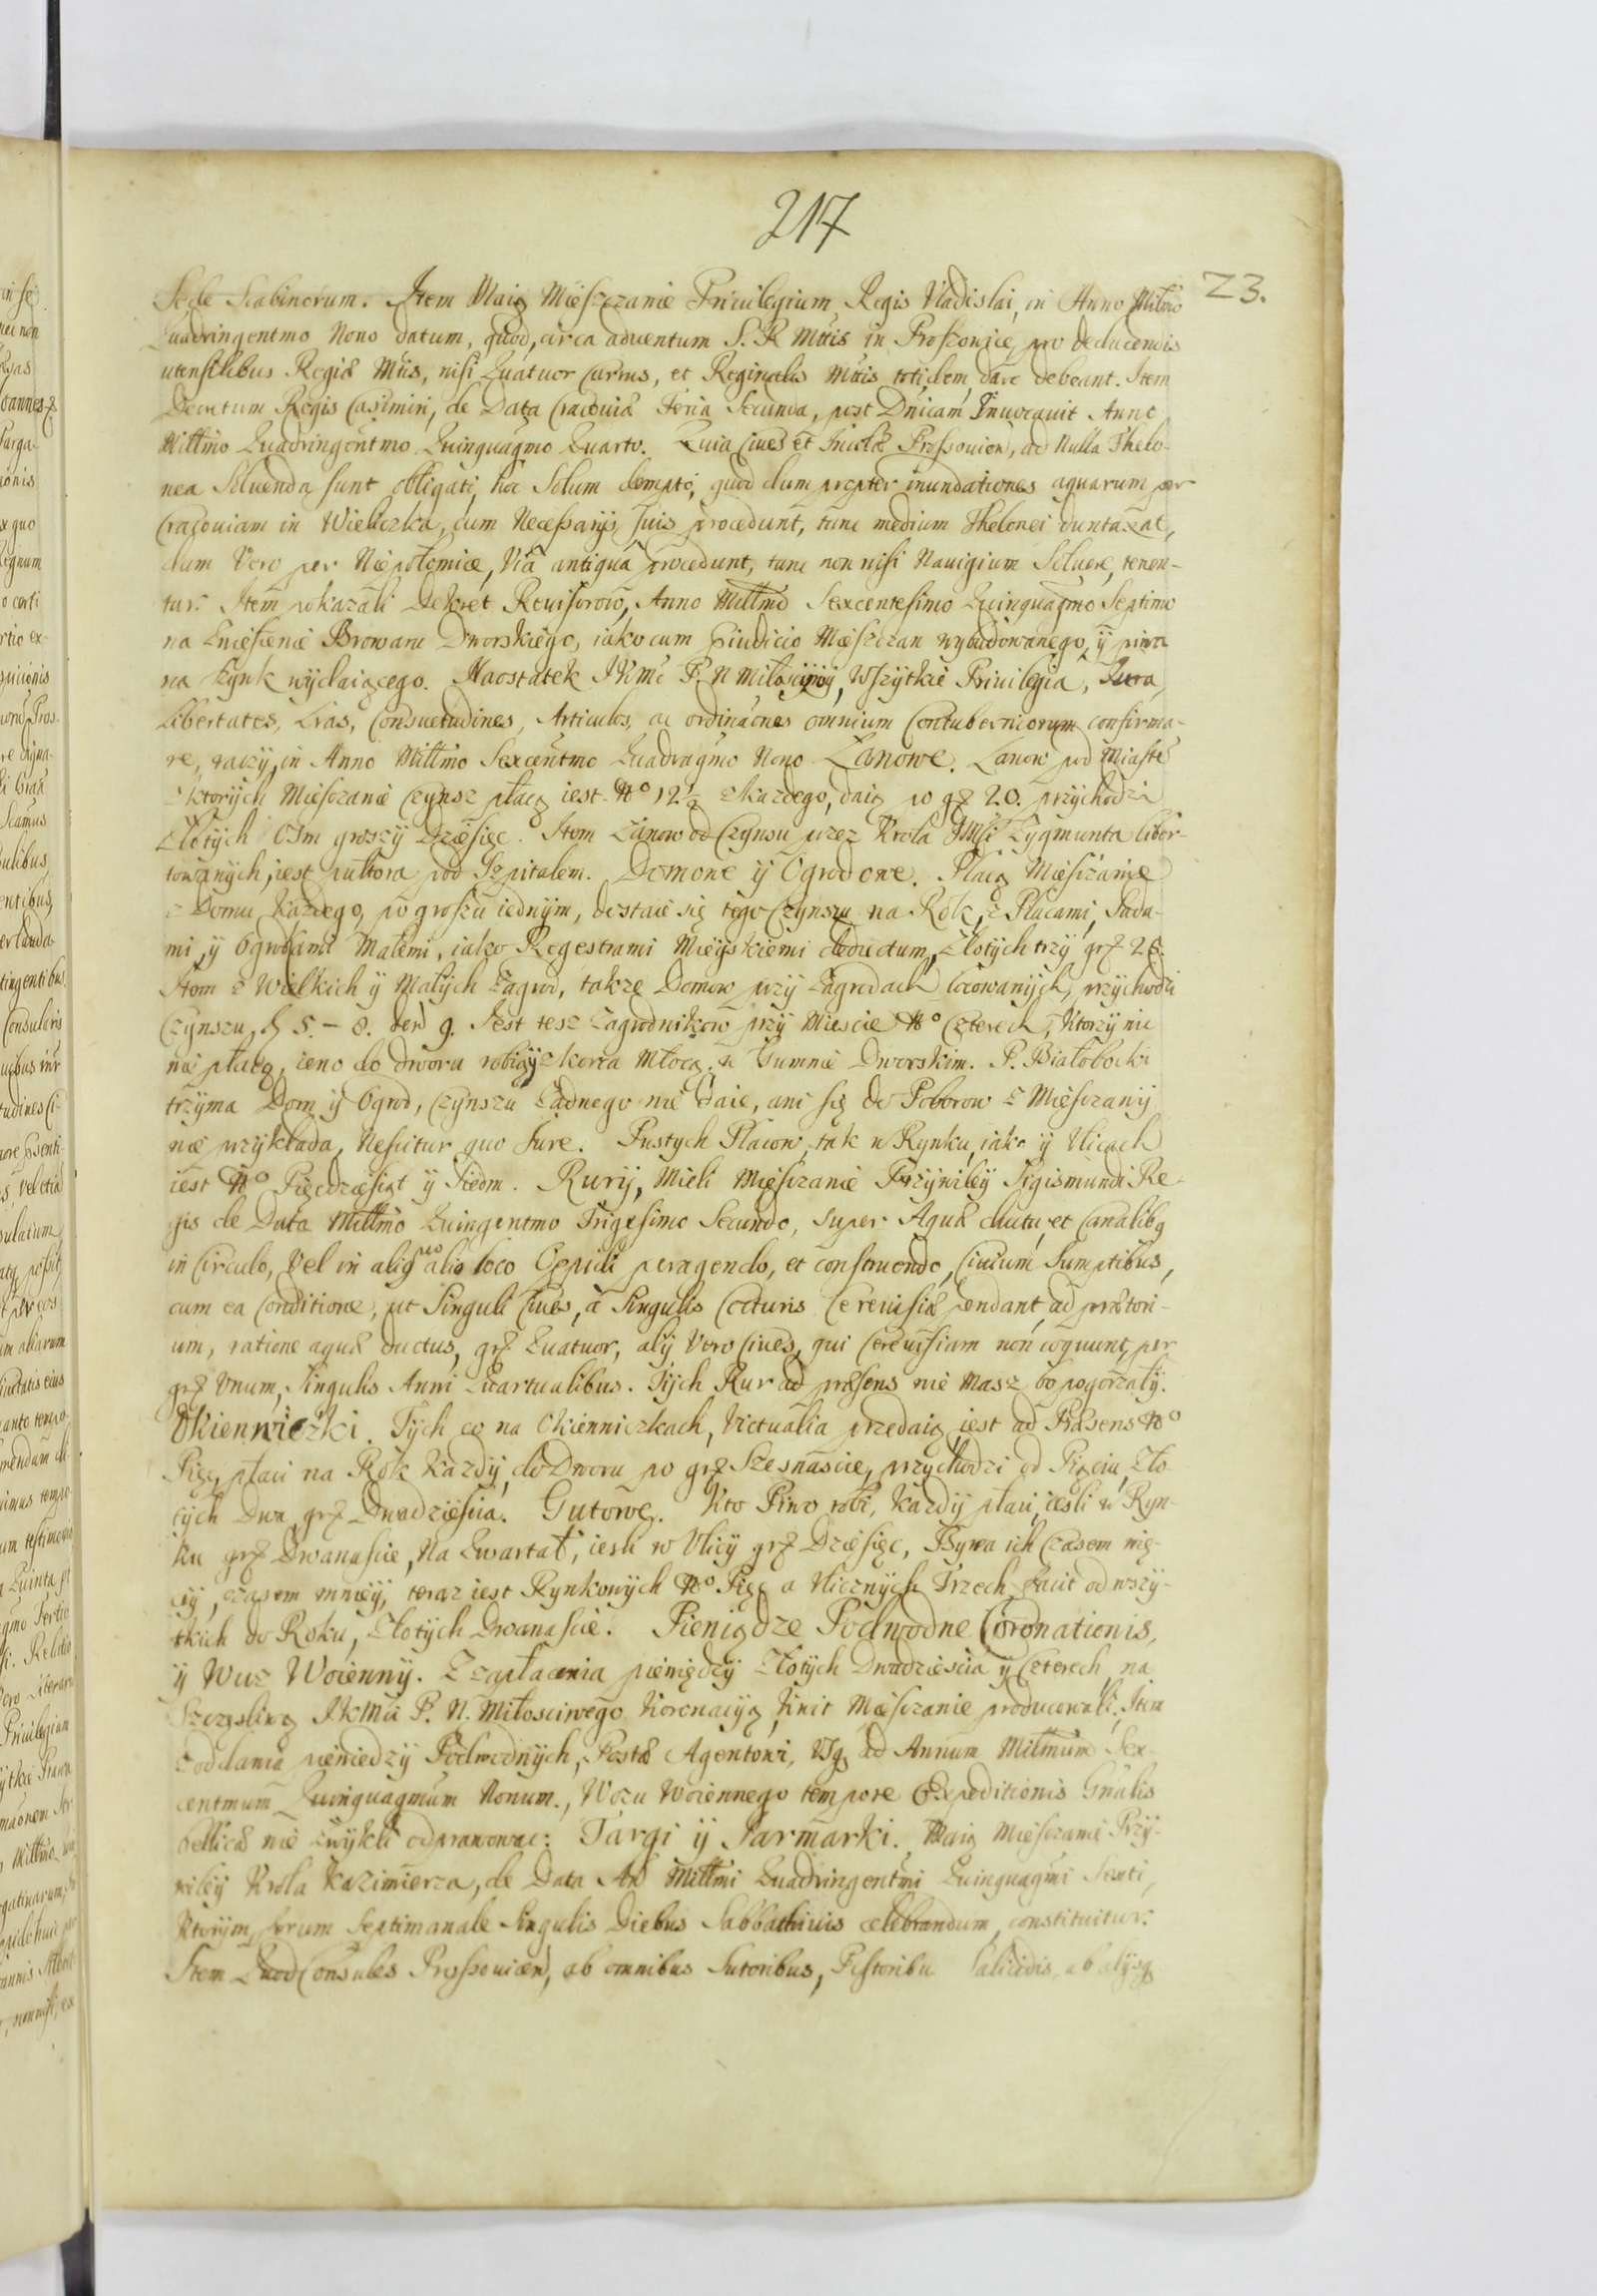 217
23.
Sede Scabinorum. Item Maią Mieszczanie Priuilegium Regis Vladislai, in Anno Millmo
Quadringentmo Nono datum, quod, circa aduentum S. R. Mttis in Proszouice, pro deducendis
utensilibus Regiæ Mttis, nisi Quatuor Currus, et Reginalis Mttis totidem, dare debeant. Item
Decretum Regis Casimiri, de Data Cracouiæ Feria Secunda, post Dnicam Inuocauit Anno
Millmo Quadringentmo Quinquagmo Quarto. Quia Ciues et Incolæ Prossouien, ad Nulla Thelo-
nea Soluenda sunt obligati, hoc Solum dempto, quod dum propter inundationes aquarum per
Cracouiam in Wieliczka, cum Necessarijs suis procedunt, tunc medium Thelonei duntaxat,
dum Vero per Niepołomice, Via antiqua procedunt, tunc non nisi Nauigium Soluere, tenen-
tur. Item pokazali Dekret Reuisorow, Anno Millmo Sexcentesimo Quinquagmo Septimo
na Zniesienie Browaru Dworskiego, iako cum Piudicio Mieszczan wybudowanego, ÿ piwa
na Szynk wydaiącego. Naostatek JKMc P. N. Miłosciwÿ, Wszytkie Priuilegia, Jura,
Libertates, Lras, Consuetudines, Articulos, ac ordinaones omnium Contuberniorum confirma-
re, raczÿ, in Anno Millmo Sexcentmo Quadragmo Nono. Łanowe. Łanow pod Miastē
z ktorÿch Miesczanie Czynsz płacą iest No 12½ z kazdego, daią po gr 20. przÿchodzi
Złotÿch Osm groszÿ Dziesięc. Item Łanow od Czynsu przez Krola JMsi Zygmunta liber-
towanÿch, iest pułtora pod Szpitalem. Domowe ÿ Ogrodowe. Płacą Miesczanie
z Domu Kazdego, po groszu iednÿm, dostaie się tego Czynszu na Rok, z Placami, Sada-
mi, ÿ Ogrodami Małemi, iako Regestrami Mieÿskiemi deductum, Złotÿch trzÿ gr 28.
Item z Wielkich ÿ Małÿch Zagrod, takze Domow przÿ Zagrodach locowanÿch, przÿchodzi
Czynszu, f 5. – 8. den 9. Jest tesz Zagrodnikow przÿ Miescie No Czterech, Ktorzÿ nic
nie płacą, ieno do dworu robią, z korca Młocą, w Gumnie Dworskim. P. Białobocki
trzyma Dom ÿ Ogrod, Czÿnszu Zadnego nie daie, ani się do Poborow z Miesczanÿ
nie przÿkłada, Nescitur quo Jure. Pustych Placow, tak w Rynku, iako ÿ Vlicach
iest No Pięcdziesiąt ÿ Siedm. Rurÿ, Mieli Miesczanie Przÿwileÿ Sigismundi Re-
gis de Data Millmo Quingentmo Trigesimo Secundo, super Aquæ ductu, et Canalibq
in Circulo, Vel in aliquo alio loco Oppidi peragendo, et construendo, Ciuium Sumptibus,
cum ea Conditione, ut Singuli Ciues, a Singulis Cocturis Cereuisiæ pendant, ad prætori-
um, ratione aquæ ductus, gr Quatuor, alÿ Vero Ciues, qui Cereuisiam non coquunt, per
gr Vnum, Singulis Anni Quartualibus. Tÿch Rur ad præsens nie Masz bo pogorzałÿ.
Okienniczki. Tÿch co na Okienniczkach, Victualia przedaią, iest ad Præsens No
Pięc, płaci na Rok Kazdÿ, do Dworu po gr Szesnascie, przÿchodzi od Pięciu, Zło-
tÿch Dwa, gr Dwadziescia. Gutowe. Kto Piwo robi, Kazdÿ płaci, iesli w Ryn-
ku gr Dwanascie, Na Kwartał, iesli w Vlicÿ gr Dziesięc, Bÿwa ich Czasem wię-
cÿ, czasem mnieÿ, teraz iest Rynkowÿch No Pięc a Vlicznÿch Trzech, facit od wszÿ-
tkich do Roku, Złotÿch Dwanascie. Pieniądze Podwodne Coronationis,
ÿ Wuz Woiennÿ. Z zapłacenia pieniędzÿ Złotÿch Dwadziescia ÿ Czterech na
Szczęsliwą JKMci P. N. Miłosciwego Koronacÿą, Kwit Miesczanie producowali. Item
z oddania pieniedzÿ Podwodnÿch, Postæ Agentowi, Vsq ad Annum Milmum Sex-
centmum Quinquagmum Nonum., Wozu Woiennego tempore Expeditionis Gnalis
bellicæ nie Zwÿkli odprawowac. Targi ÿ Jarmarki. Maią Miesczanie Przÿ-
wileÿ Krola Kazimierza, de Data A͞o Millmi Quadringentmi Quinquagmi Sexti,
Ktorÿm, forum Septimanale Singulis Diebus Sabbathiuis celebrandum, constituitur.
Item Quod Consules Prossouien, ab omnibus Sutoribus, Pistoribu Salicidis, ab alÿsq